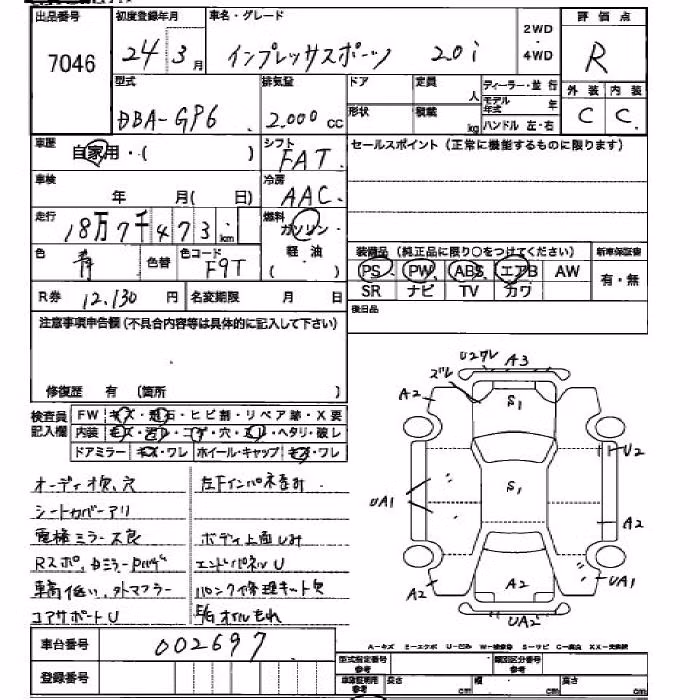 出品番号 初度登録年月 車名・グレード 2WD・4WD 評価点
7046 24年3月 インプレッサスポーツ 2.0i R
型式 排気量 ドア 定員 人 ディーラー・並行 外装 内装
DBA-GP6 2.000cc 形状 積載 kg モデル年式 年 ハンドル 左・右 C C
車歴 自家用・( ) シフト FAT セールスポイント(正常に機能するものに限ります)
車検 年 月( 日) 冷房 AAC
走行 18万7千473km 燃料 ガソリン 軽油 ( )
色 青 色替 色コード F9T
装備品(純正品に限り○をつけてください) 新車保証書
PS PW ABS エアB AW 有・無
SR ナビ TV カワ
R券 12.130円 名変期限 月 日
後日品
注意事項申告欄(不具合内容等は具体的に記入して下さい)
修復歴 有 (箇所 )
検査員記入欄 FW キズ・飛石・ヒビ割・リペア跡・X要
内装 キズ・汚レ・コゲ・穴・スレ・ヘタリ・破レ
ドアミラー キズ・ワレ ホイール・キャップ キズ・ワレ
オーディオ欠、穴 左下インパネ歪み
シートカバーアリ
電格ミラー不良 ボディ上面しみ
Rスポ、 エンドパネルU
車高低い、外マフラー パンク修理キット欠
コアサポートU E/Gオイルもれ
ズレ U2ワレ A3
A2 S1
U2
S1
UA1 A2
A2 A2 UA1
UA2
A-キズ E-エクボ U-凹み W-補修跡 S-サビ C-腐食 XX-交換済
車台番号 002697
型式指定番号 類別区分番号
登録番号 長さ cm 幅 cm 高さ cm